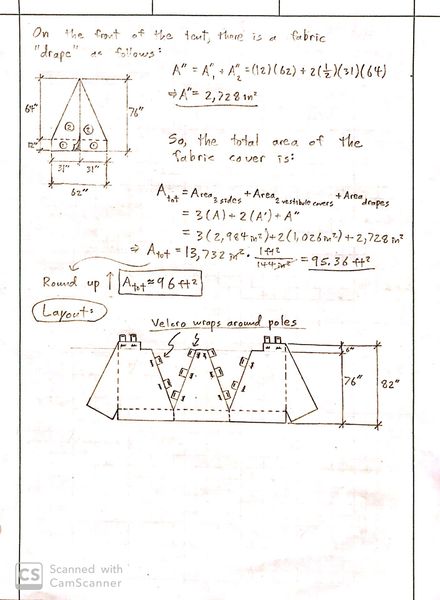 On the front of the tent, there is a fabric
"drape" as follows:
A" = A"₁ + A"₂ = (12)(62) + 2(½)(31)(64)
⇒ A" = 2,728 in²
64"
76"
12"
② ②
① ①
31" 31"
62"
So, the total area of the
fabric cover is:
A tot = Area 3 sides + Area 2 vestibule covers + Area drapes
= 3(A) + 2(A') + A"
= 3(2,984 in²) + 2(1,026 in²) + 2,728 in²
⇒ A tot = 13,732 in² · 1 ft² / 144 in² = 95.36 ft²
Round up ↑ A tot ≈ 96 ft²
Layout:
Velcro wraps around poles
6"
76"
82"
CS Scanned with
CamScanner